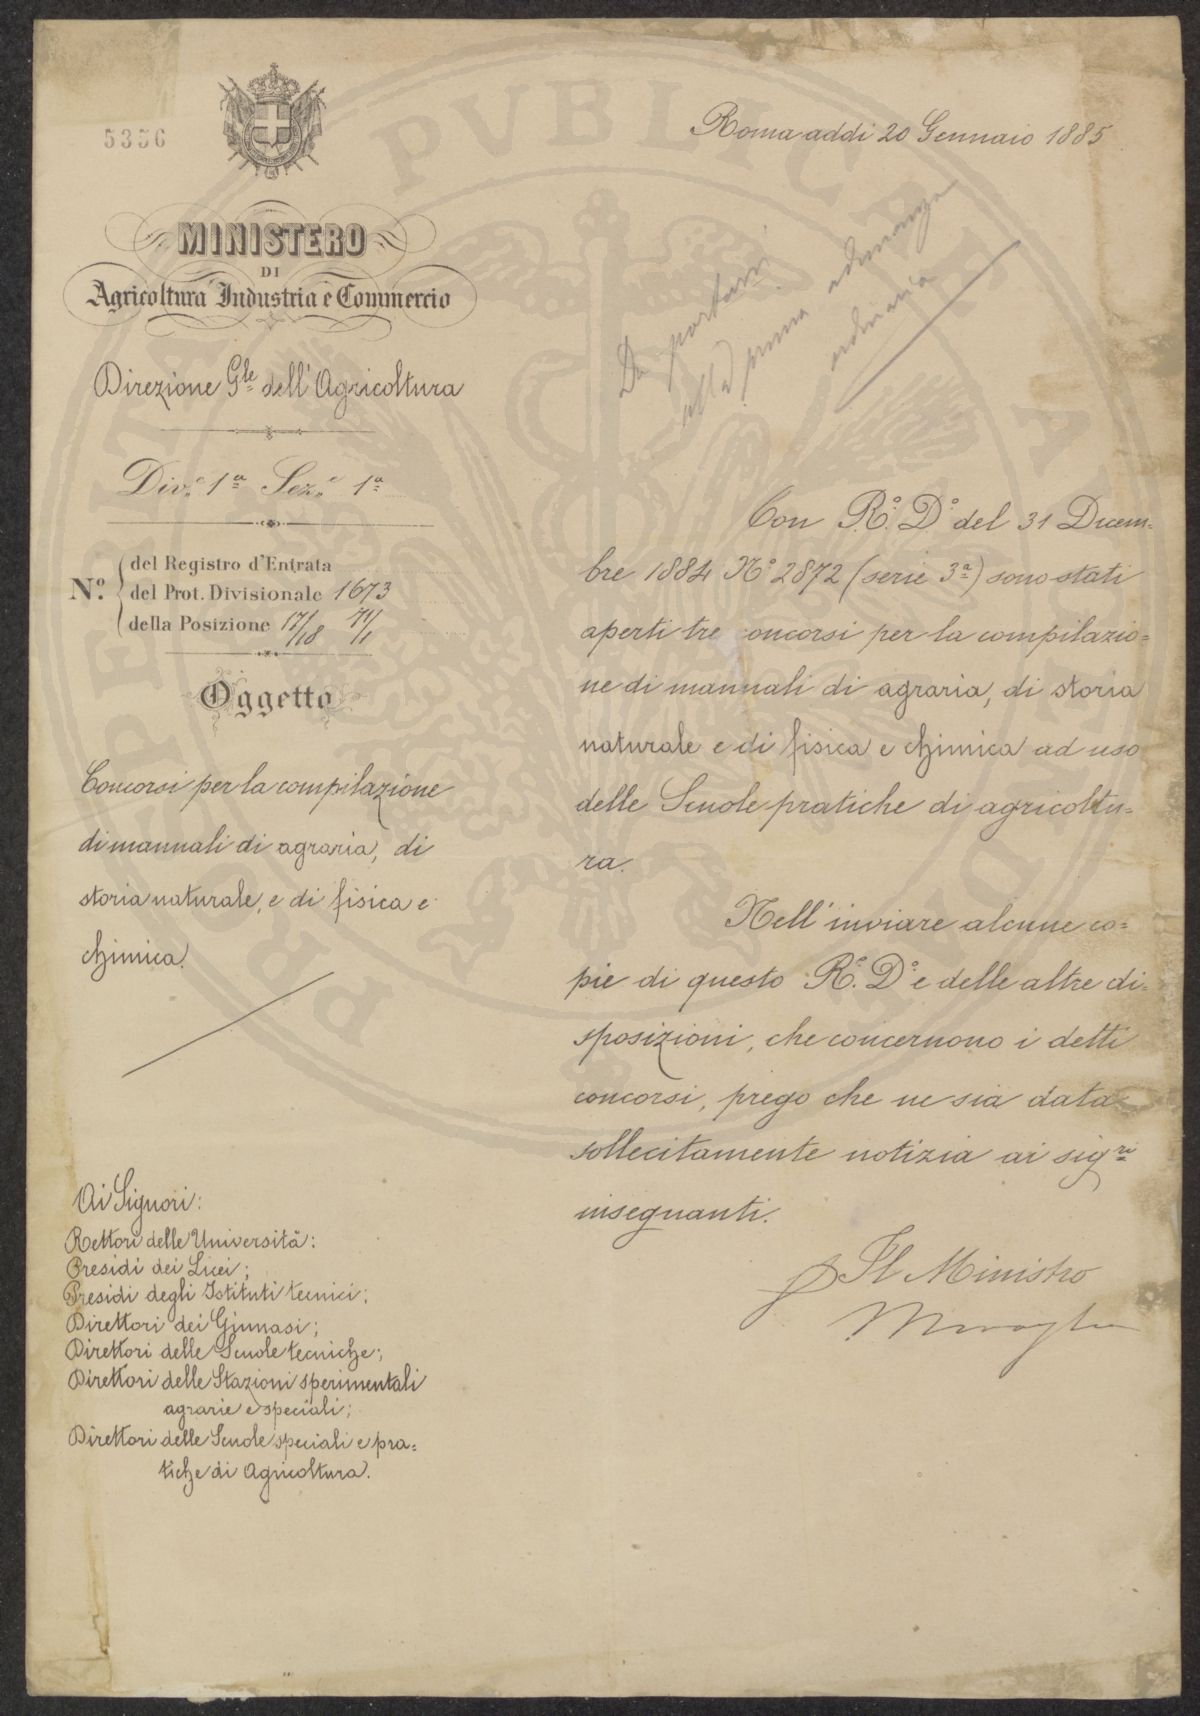 5356
Roma addì 20 Gennaio 1885
MINISTERO
DI
Agricoltura Industria e Commercio
Direzione Gle dell'Agricoltura
Div.e 1a Sez.e 1a
N.o
del Registro d'Entrata
del Prot. Divisionale 1673
della Posizione 17/18 71/1
Oggetto
Concorsi per la compilazione
di manuali di agraria, di
storia naturale, e di fisica e
chimica.
Ai Signori:
Rettori delle Università:
Presidi dei Licei;
Presidi degli Istituti tecnici;
Direttori dei Ginnasi;
Direttori delle Scuole tecniche;
Direttori delle Stazioni sperimentali
agrarie e speciali;
Direttori delle Scuole speciali e pra=
tiche di Agricoltura.
Da portarsi
alla prima adunanza
ordinaria
Con R.o D.o del 31 Dicem-
bre 1884 N.o 2872 (serie 3a) sono stati
aperti tre concorsi per la compilazio=
ne di manuali di agraria, di storia
naturale e di fisica e chimica ad uso
delle Scuole pratiche di agricoltu=
ra.
Nell'inviare alcune co=
pie di questo R.o D.o e delle altre di=
sposizioni, che concernono i detti
concorsi, prego che ne sia data
sollecitamente notizia ai sigri
insegnanti.
Il Ministro